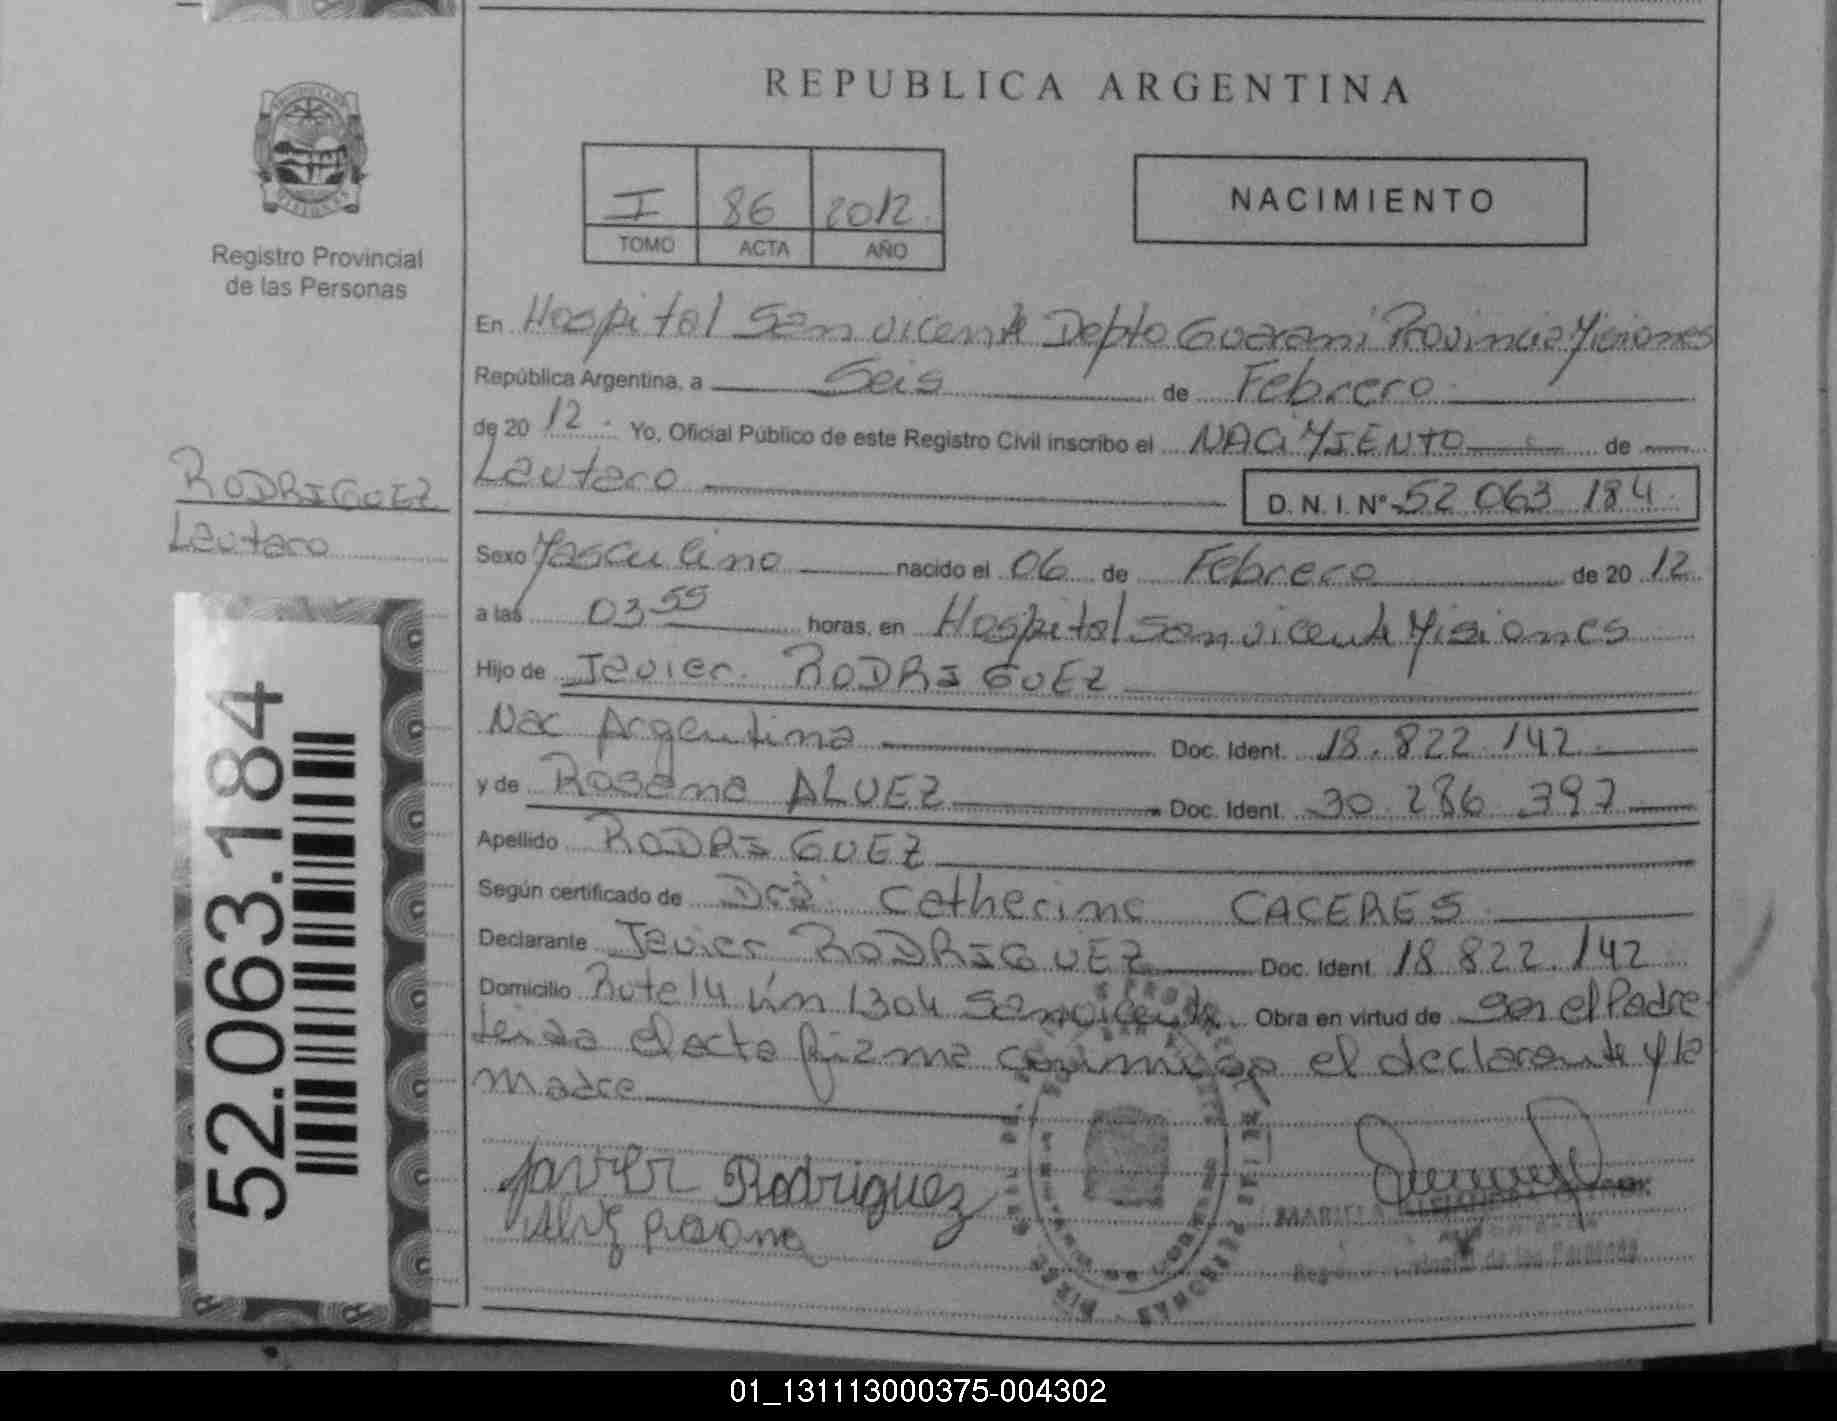 REPUBLICA ARGENTINA
Registro Provincial
de las Personas
I 86 2012
TOMO ACTA AÑO
NACIMIENTO
En Hospital San Vicente Depto Guarani Provincia Misiones
República Argentina, a Seis de Febrero
de 20 12 . Yo, Oficial Público de este Registro Civil inscribo el NACIMIENTO de
Lautaro D. N. I. Nº 52 063 184
RODRIGUEZ
Lautaro
Sexo Masculino nacido el 06 de Febrero de 20 12
a las 03 55 horas, en Hospital San Vicente Misiones
Hijo de Javier RODRIGUEZ
Nac Argentina Doc. Ident. 18.822.142
y de Rosana ALVEZ Doc. Ident. 30.286.397
Apellido RODRIGUEZ
Según certificado de Dra. Catherine CACERES
Declarante Javier RODRIGUEZ Doc. Ident. 18.822.142
Domicilio Ruta 14 km 1304 San Vicente Obra en virtud de ser el Padre
leida el acta firma conmigo el declarante y la
madre
Javier Rodriguez
Alvez Rosana
52.063.184
01_131113000375-004302